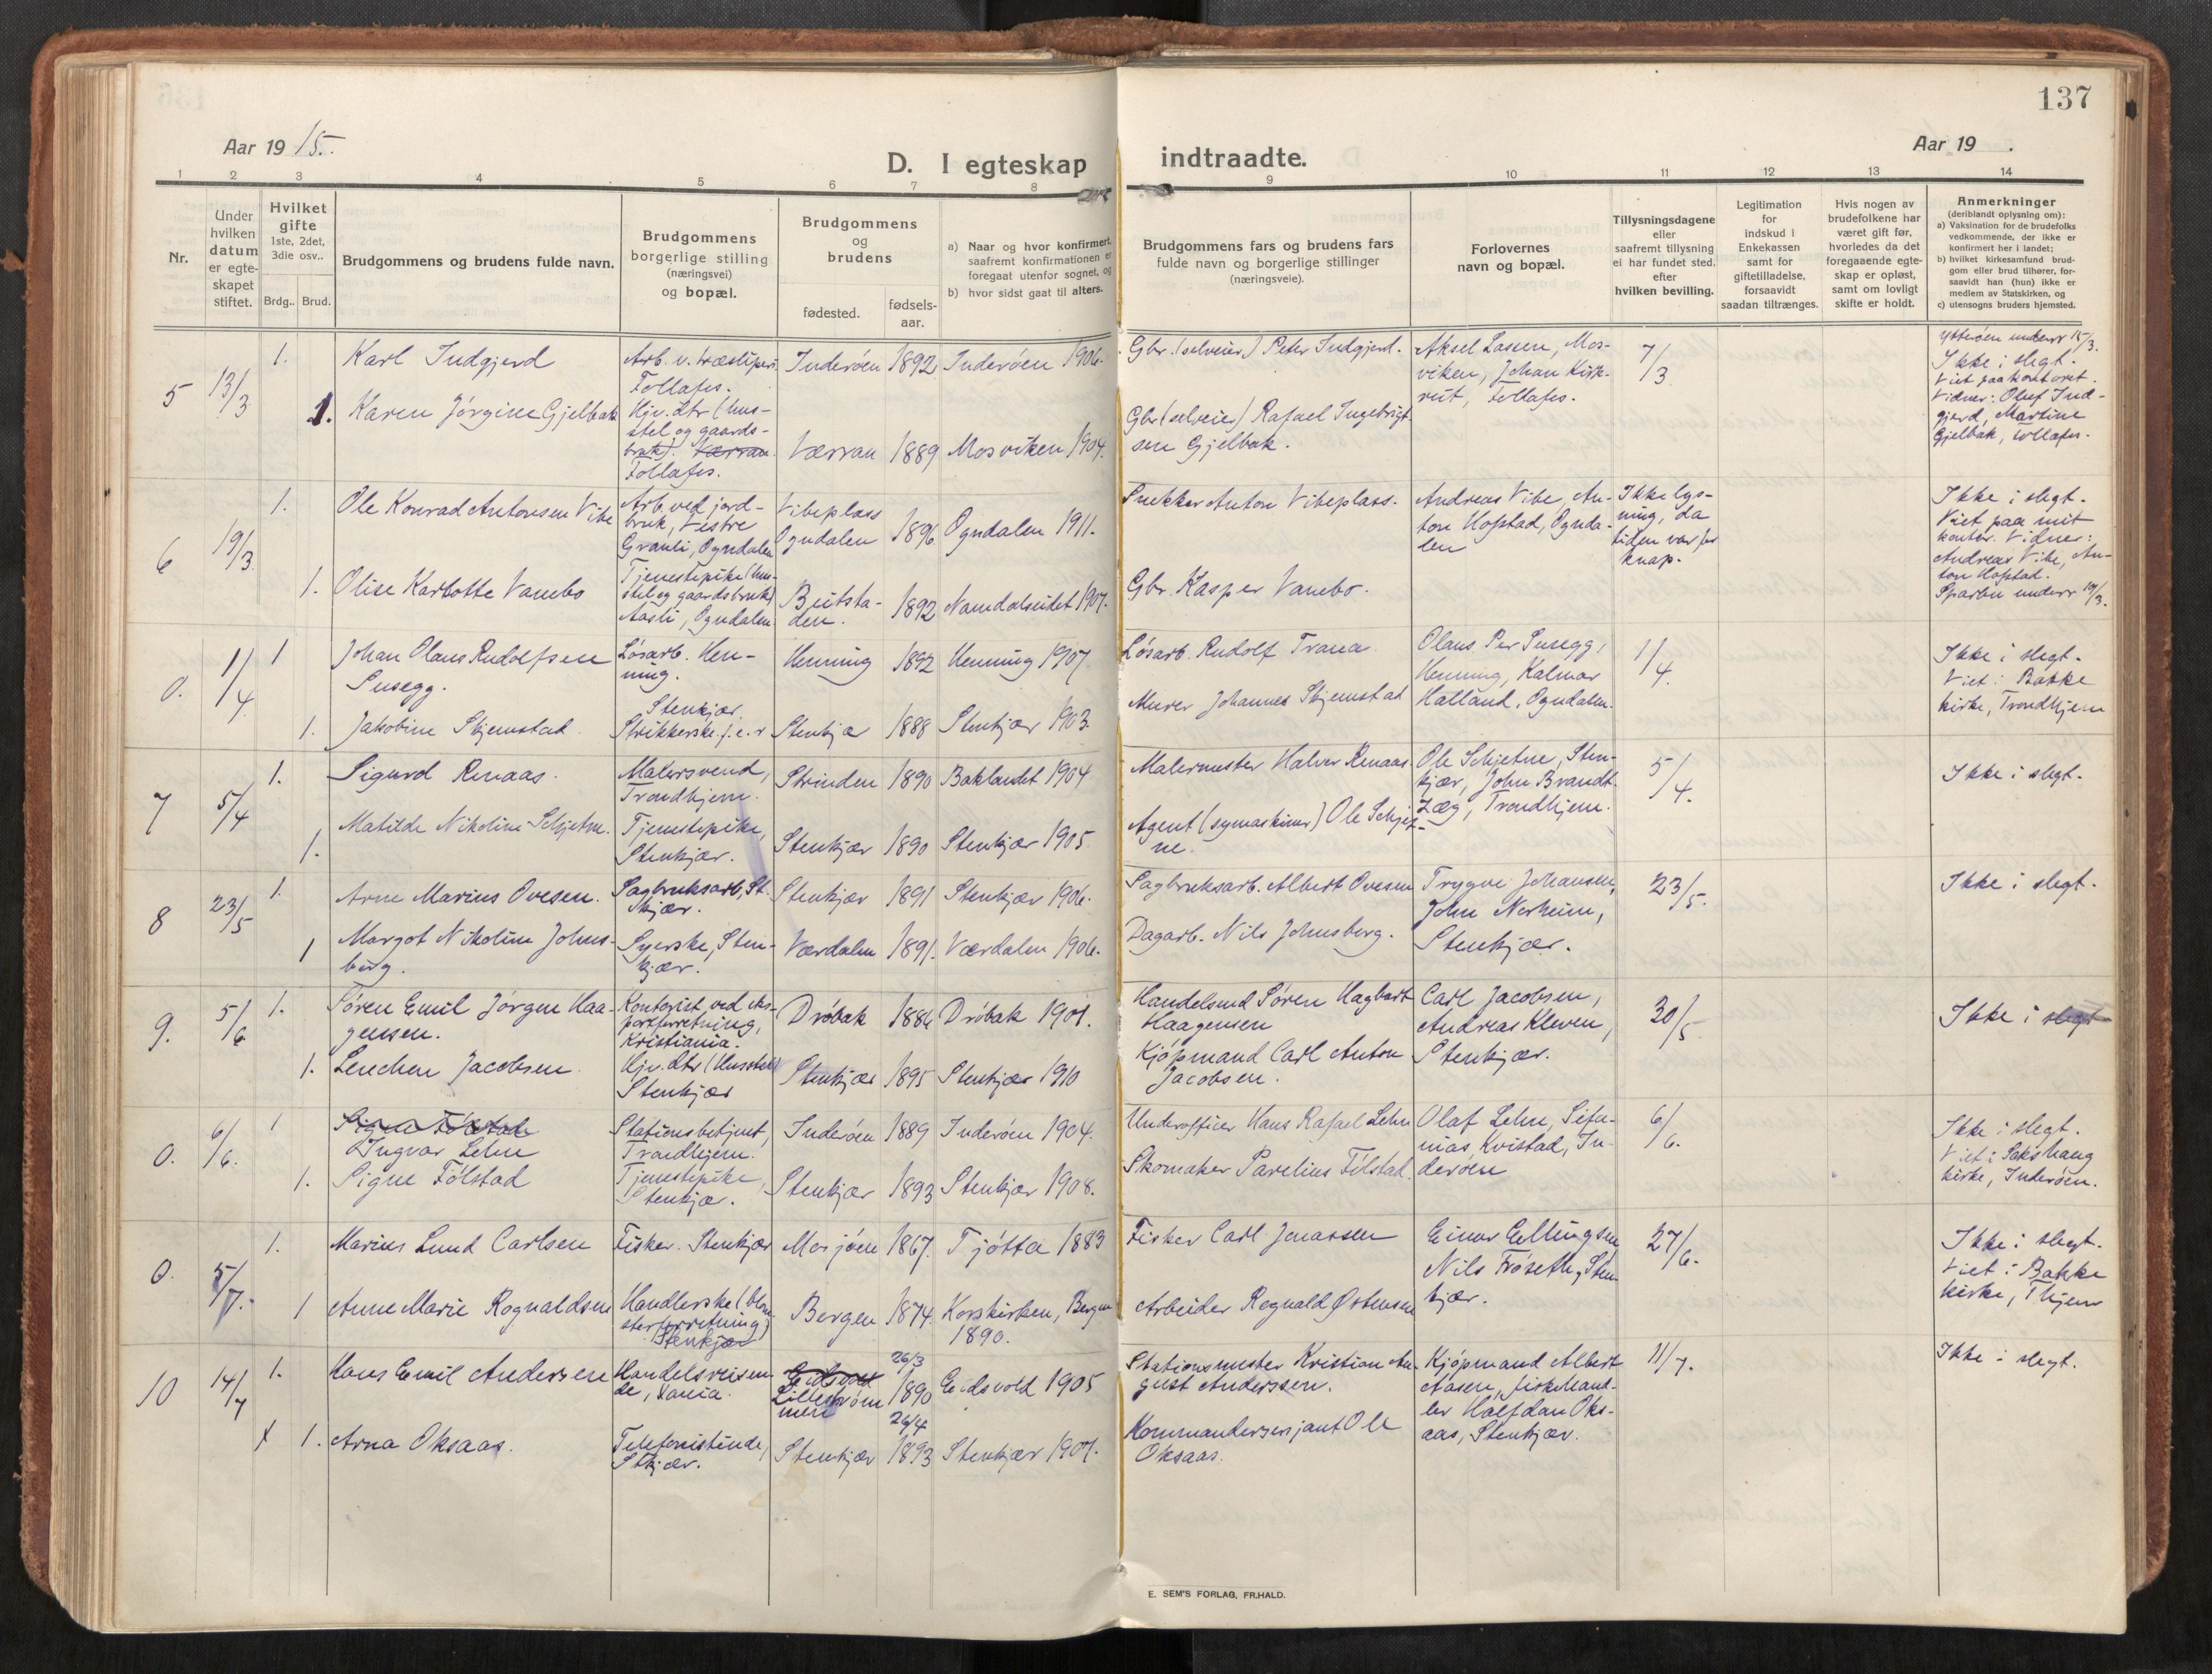 137
Aar 19 15.
Aar 19 .
D. I egteskap indtraadte.
1 2 3 4 5 6 7 8 9 10 11 12 13 14
Nr.
Under
hvilken
datum
er egte-
skapet
stiftet.
Hvilket
gifte
1ste, 2det,
3die osv..
Brdg.. Brud.
Brudgommens og brudens fulde navn.
Brudgommens
borgerlige stilling
(næringsvei)
og bopæl.
Brudgommens
og
brudens
fødested.
fødsels-
aar.
a) Naar og hvor konfirmert,
saafremt konfirmationen er
foregaat utenfor sognet, og
b) hvor sidst gaat til alters.
Brudgommens fars og brudens fars
fulde navn og borgerlige stillinger
(næringsveie).
Forlovernes
navn og bopæl.
Tillysningsdagene
eller
saafremt tillysning
ei har fundet sted.
efter
hvilken bevilling.
Legitimation
for
indskud i
Enkekassen
samt for
giftetilladelse,
forsaavidt
saadan tiltrænges.
Hvis nogen av
brudefolkene har
været gift før,
hvorledes da det
foregaaende egte-
skap er opløst,
samt om lovligt
skifte er holdt.
Anmerkninger
(deriblandt oplysning om):
a) Vaksination for de brudefolks
vedkommende, der ikke er
konfirmert her i landet;
b) hvilket kirkesamfund brud-
gom eller brud tilhører, for-
saavidt han (hun) ikke er
medlem av Statskirken, og
c) utensogns bruders hjemsted.
5
13/3
1.
Karl Indgjerd
Arb. v. træsliperi
Follafos.
Inderøen 1892 Inderøen 1906.
Gbr. (selveier) Peter Indgjerd.
Aksel Lassen, Mos-
viken, Johan Kirk-
reit, Follafos.
7/3
Ytterøen underr 15/3.
Ikke i slegt.
Viet paa kontoret.
Vidner: Oluf Ind-
gjerd, Martine
Gjelbak, Follafos.
1.
Karen Jørgine Gjelbak
Hjv. Dtr (hus-
stel og gaards-
bruk). Værran
Follafos.
Værran 1889 Mosviken 1904.
Gbr (selveier) Rafael Ingebrigt-
sen Gjelbak.
6
19/3.
1.
Ole Konrad Antonsen Vibe
Arb. ved jord-
bruk, Vestre
Granli, Ogndalen
Vibeplass
Ogndalen 1896 Ogndalen 1911.
Snekker Anton Vibeplass.
Andreas Vibe, An-
ton Hofstad, Ognda-
len
Ikke lys-
ning, da
tiden var for
knap.
Ikke i slegt.
Viet paa mit
kontor. Vidner:
Andreas Vibe, An-
ton Hofstad.
Sparbu underr 19/3.
1.
Olise Karlotte Vanebo
Tjenestepike (hus-
stel og gaardsbruk)
Aasli, Ogndalen.
Beitsta-
den. 1892 Namdalseidet 1907.
Gbr. Kasper Vanebo.
0.
1/4
1
Johan Olaus Rudolfsen
Susegg.
Løsarb. Hen-
ning.
Henning 1892 Henning 1907
Løsarb. Rudolf Trana.
Olaus Per Susegg,
Henning, Kalmar
Hatland, Ogndalen.
1/4.
Ikke i slegt.
Viet i Bakke
kirke, Trondhjem
1.
Jakobine Skjemstad.
Stenkjær
Strikkerske f.e.r
Stenkjær 1888 Stenkjær 1903.
Murer Johannes Skjemstad
7
5/4
1.
Sigurd Renaas.
Malersvend,
Trondhjem.
Strinden 1890 Baklandet 1904
Malermester Halvor Renaas
Ole Schjetne, Sten-
kjær, John Brandt-
zæg, Trondhjem.
5/4.
Ikke i slegt.
1.
Matilde Nikoline Schjetne.
Tjenestepike,
Stenkjær.
Stenkjær 1890 Stenkjær 1905.
Agent (symaskiner) Ole Schjet-
ne.
8
23/5
1.
Arne Marius Ovesen.
Sagbruksarb, St.
kjær.
Stenkjær 1891 Stenkjær 1906.
Sagbruksarb. Albert Ovesen
Trygve Johansen,
John Norheim,
Stenkjær.
23/5.
Ikke i slegt.
1
Margot Nikoline Johns-
berg.
Syerske, Sten-
kjær.
Værdalen 1891. Værdalen 1906.
Dagarb. Nils Johnsberg.
9.
5/6
1.
Søren Emil Jørgen Haa-
gensen.
Kontorist ved eks-
portforretning,
Kristiania.
Drøbak 1886 Drøbak 1901.
Handelsmd Søren Hagbart
Haagensen
Carl Jacobsen,
Andreas Kleven,
Stenkjær.
30/5
Ikke i slegt
1.
Lenchen Jacobsen.
Hjv. Dtr (Husstel)
Stenkjær
Stenkjær 1895 Stenkjær 1910
Kjøpmand Carl Anton
Jacobsen.
0.
6/6.
1
Signe Følstad
Ingvar Lehn
Stationsbetjent,
Trondhjem.
Inderøen 1889 Inderøen 1904.
Underofficer Hans Rafael Lehn
Olaf Lehn, Sefa-
nias Kvistad, In-
derøen
6/6.
Ikke i slegt.
Viet i Sakshaug
kirke, Inderøen.
1.
Signe Følstad
Tjenestepike,
Stenkjær.
Stenkjær 1893 Stenkjær 1908.
Skomaker Parelius Følstad.
0.
5/7.
1.
Marius Lund Carlsen
Fisker. Stenkjær
Mosjøen 1867. Tjøtta 1883
Fisker Carl Jonassen
Einar Ellingsen
Nils Frøseth, Sten-
kjær.
27/6.
Ikke i slegt.
Viet i Bakke
kirke, Thjem
1
Anne Marie Rognaldsen
Handlerske (blom-
sterforretning)
Stenkjær
Bergen 1874. Korskirken, Bergen
1890.
Arbeider Regnald Østensen
10
14/7
1.
Hans Emil Anderssen
Handelsreisen-
de, Kania.
Eidsvold
Lillestrøm
26/3
1890 Eidsvold 1905
Stationsmester Kristian Au-
gust Anderssen.
Kjøpmand Albert
Aasen, fiskehand-
ler Halfdan Oks-
aas, Stenkjær.
11/7.
Ikke i slegt.
x 1.
Arna Oksaas.
Telefonistinde,
Stkjær.
26/4
Stenkjær 1893 Stenkjær 1907.
Kommandersersjant Ole
Oksaas.
E. SEM'S FORLAG, FR.HALD.